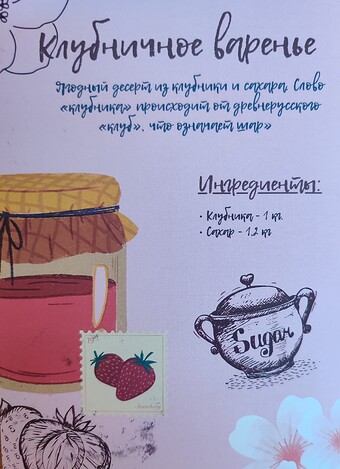 Клубничное варенье
Ягодный десерт из клубники и сахара. Слово
«клубника» происходит от древнерусского
«клуб», что означает шар»
Ингредиенты:
• Клубника - 1 кг.
• Сахар - 1.2 кг
Sugar